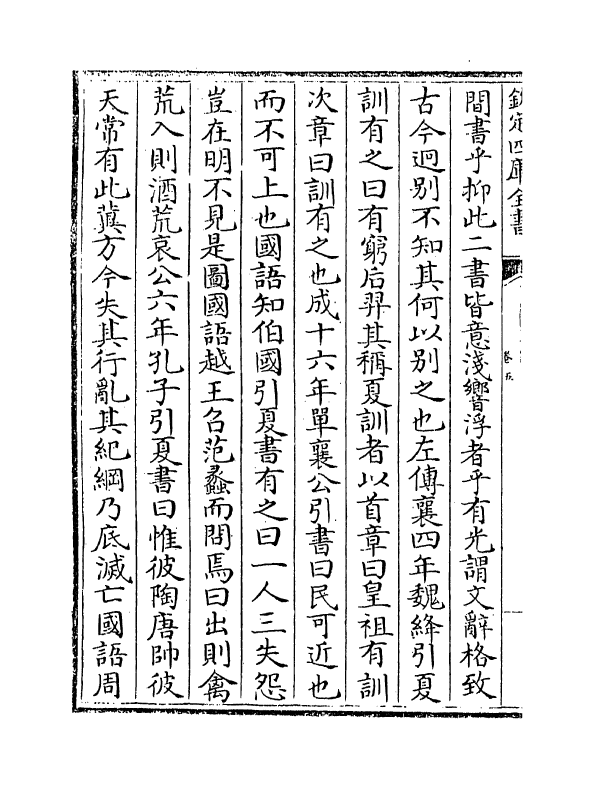 欽定四庫全書
卷五
間書乎抑此二書皆意淺響浮者乎有光謂文辭格致
古今迥别不知其何以别之也左傳襄四年魏絳引夏
訓有之曰有窮后羿其稱夏訓者以首章曰皇祖有訓
次章曰訓有之也成十六年單襄公引書曰民可近也
而不可上也國語知伯國引夏書有之曰一人三失怨
豈在明不見是圖國語越王召范蠡而問焉曰出則禽
荒入則酒荒哀公六年孔子引夏書曰惟彼陶唐帥彼
天常有此冀方今失其行亂其紀綱乃底滅亡國語周